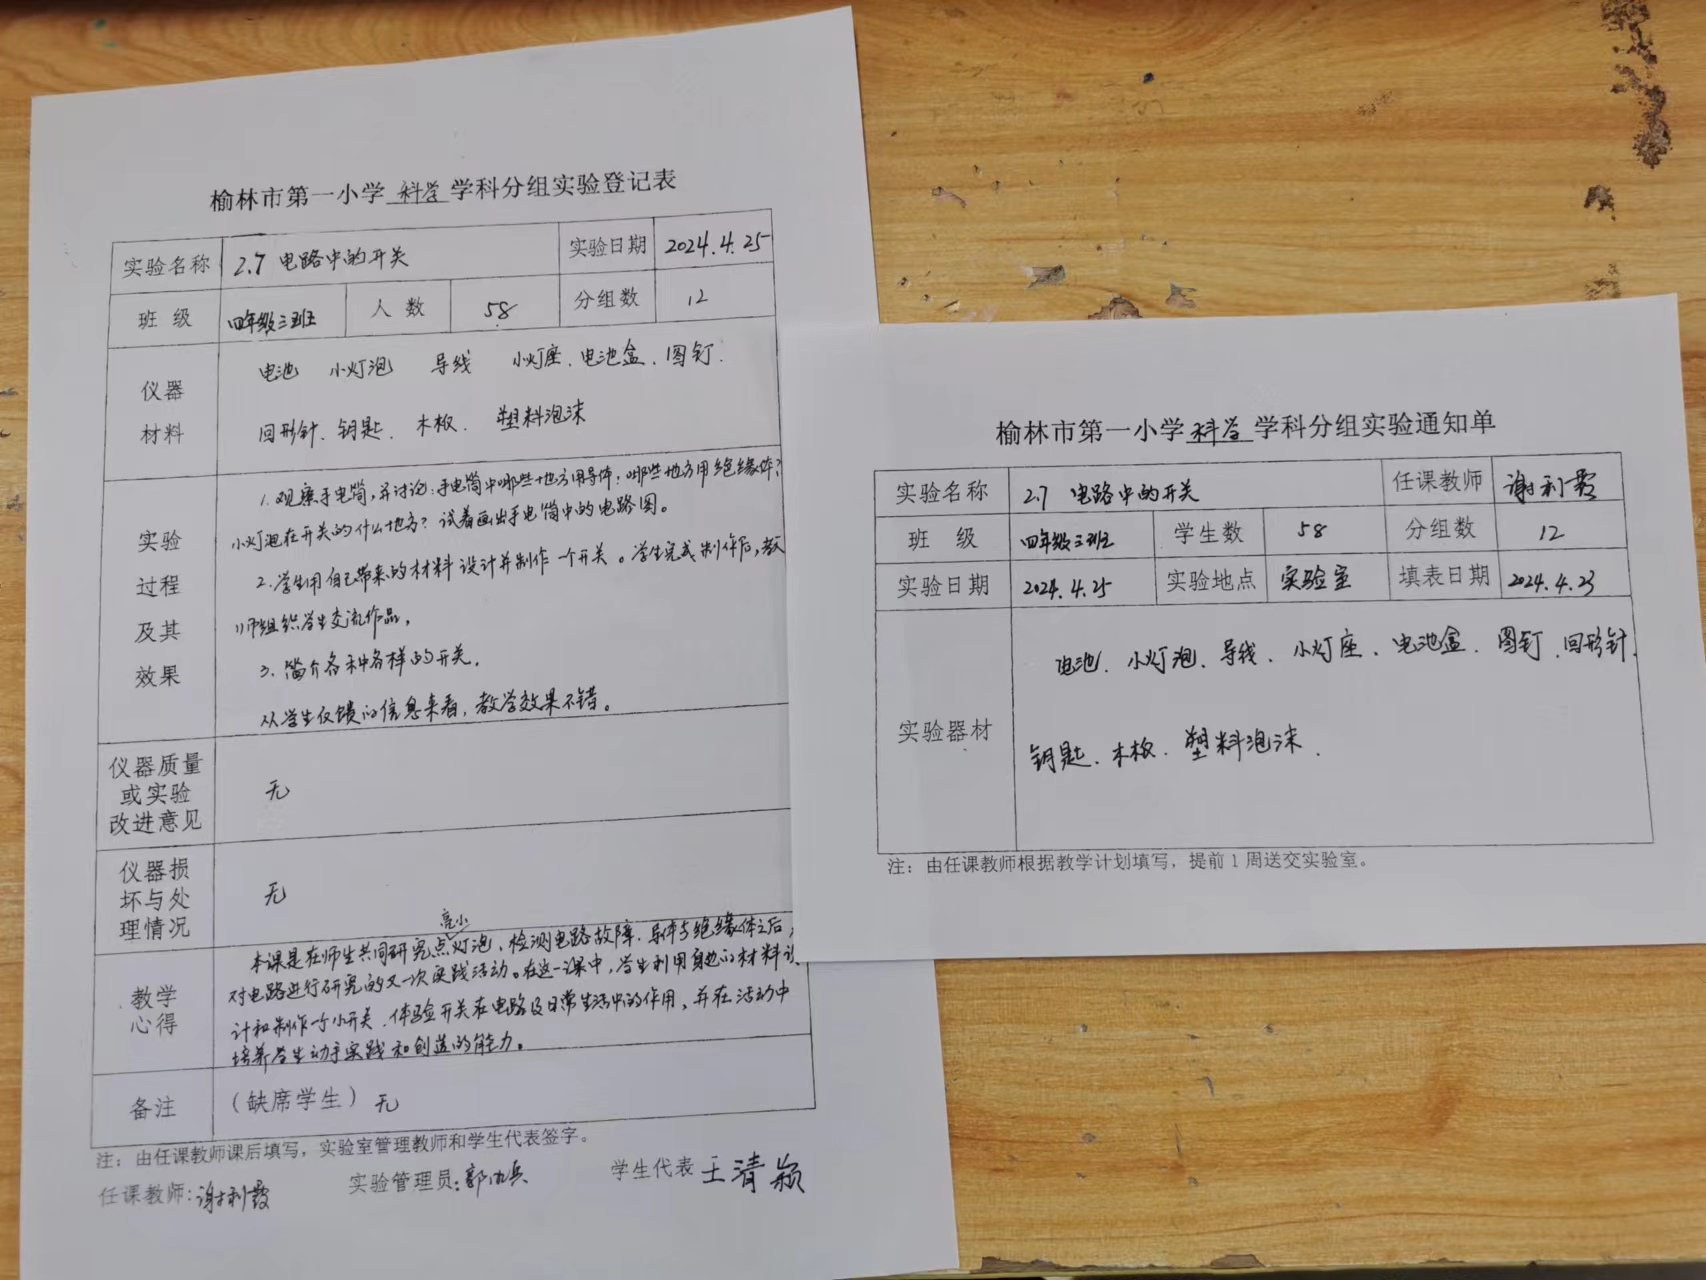 榆林市第一小学 科学 学科分组实验登记表
实验名称 2.7 电路中的开关 实验日期 2024.4.25
班 级 四年级三班 人 数 58 分组数 12
仪器 材料
电池 小灯泡 导线 小灯座、电池盒、图钉、
回形针、钥匙、木板、塑料泡沫
实验 过程 及其 效果
1. 观察手电筒,并讨论:手电筒中哪些地方用导体?哪些地方用绝缘体?
小灯泡在开关的什么地方?试着画出手电筒中的电路图。
2. 学生用自己带来的材料设计并制作一个开关。学生完成制作后,教
师组织学生交流作品。
3. 简介各种各样的开关。
从学生反馈的信息来看,教学效果不错。
仪器质量
或实验
改进意见
无
仪器损
坏与处
理情况
无
教学
心得
本课是在师生共同研究点亮小灯泡、检测电路故障、导体与绝缘体之后,
对电路进行研究的又一次实践活动。在这一课中,学生利用身边的材料设
计和制作一个小开关,体验开关在电路及日常生活中的作用,并在活动中
培养学生动手实践和创造的能力。
备注 (缺席学生) 无
注:由任课教师课后填写,实验室管理教师和学生代表签字。
任课教师:谢利霞 实验管理员: 学生代表 王清颖
榆林市第一小学 科学 学科分组实验通知单
实验名称 2.7 电路中的开关 任课教师 谢利霞
班 级 四年级三班 学生数 58 分组数 12
实验日期 2024.4.25 实验地点 实验室 填表日期 2024.4.23
实验器材
电池、小灯泡、导线、小灯座、电池盒、图钉、回形针、
钥匙、木板、塑料泡沫、
注:由任课教师根据教学计划填写,提前1周送交实验室。